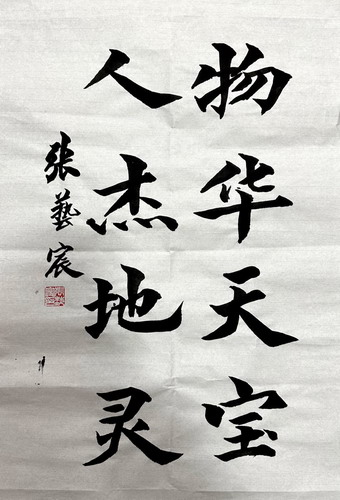 物华天宝
人杰地灵
张藝宸